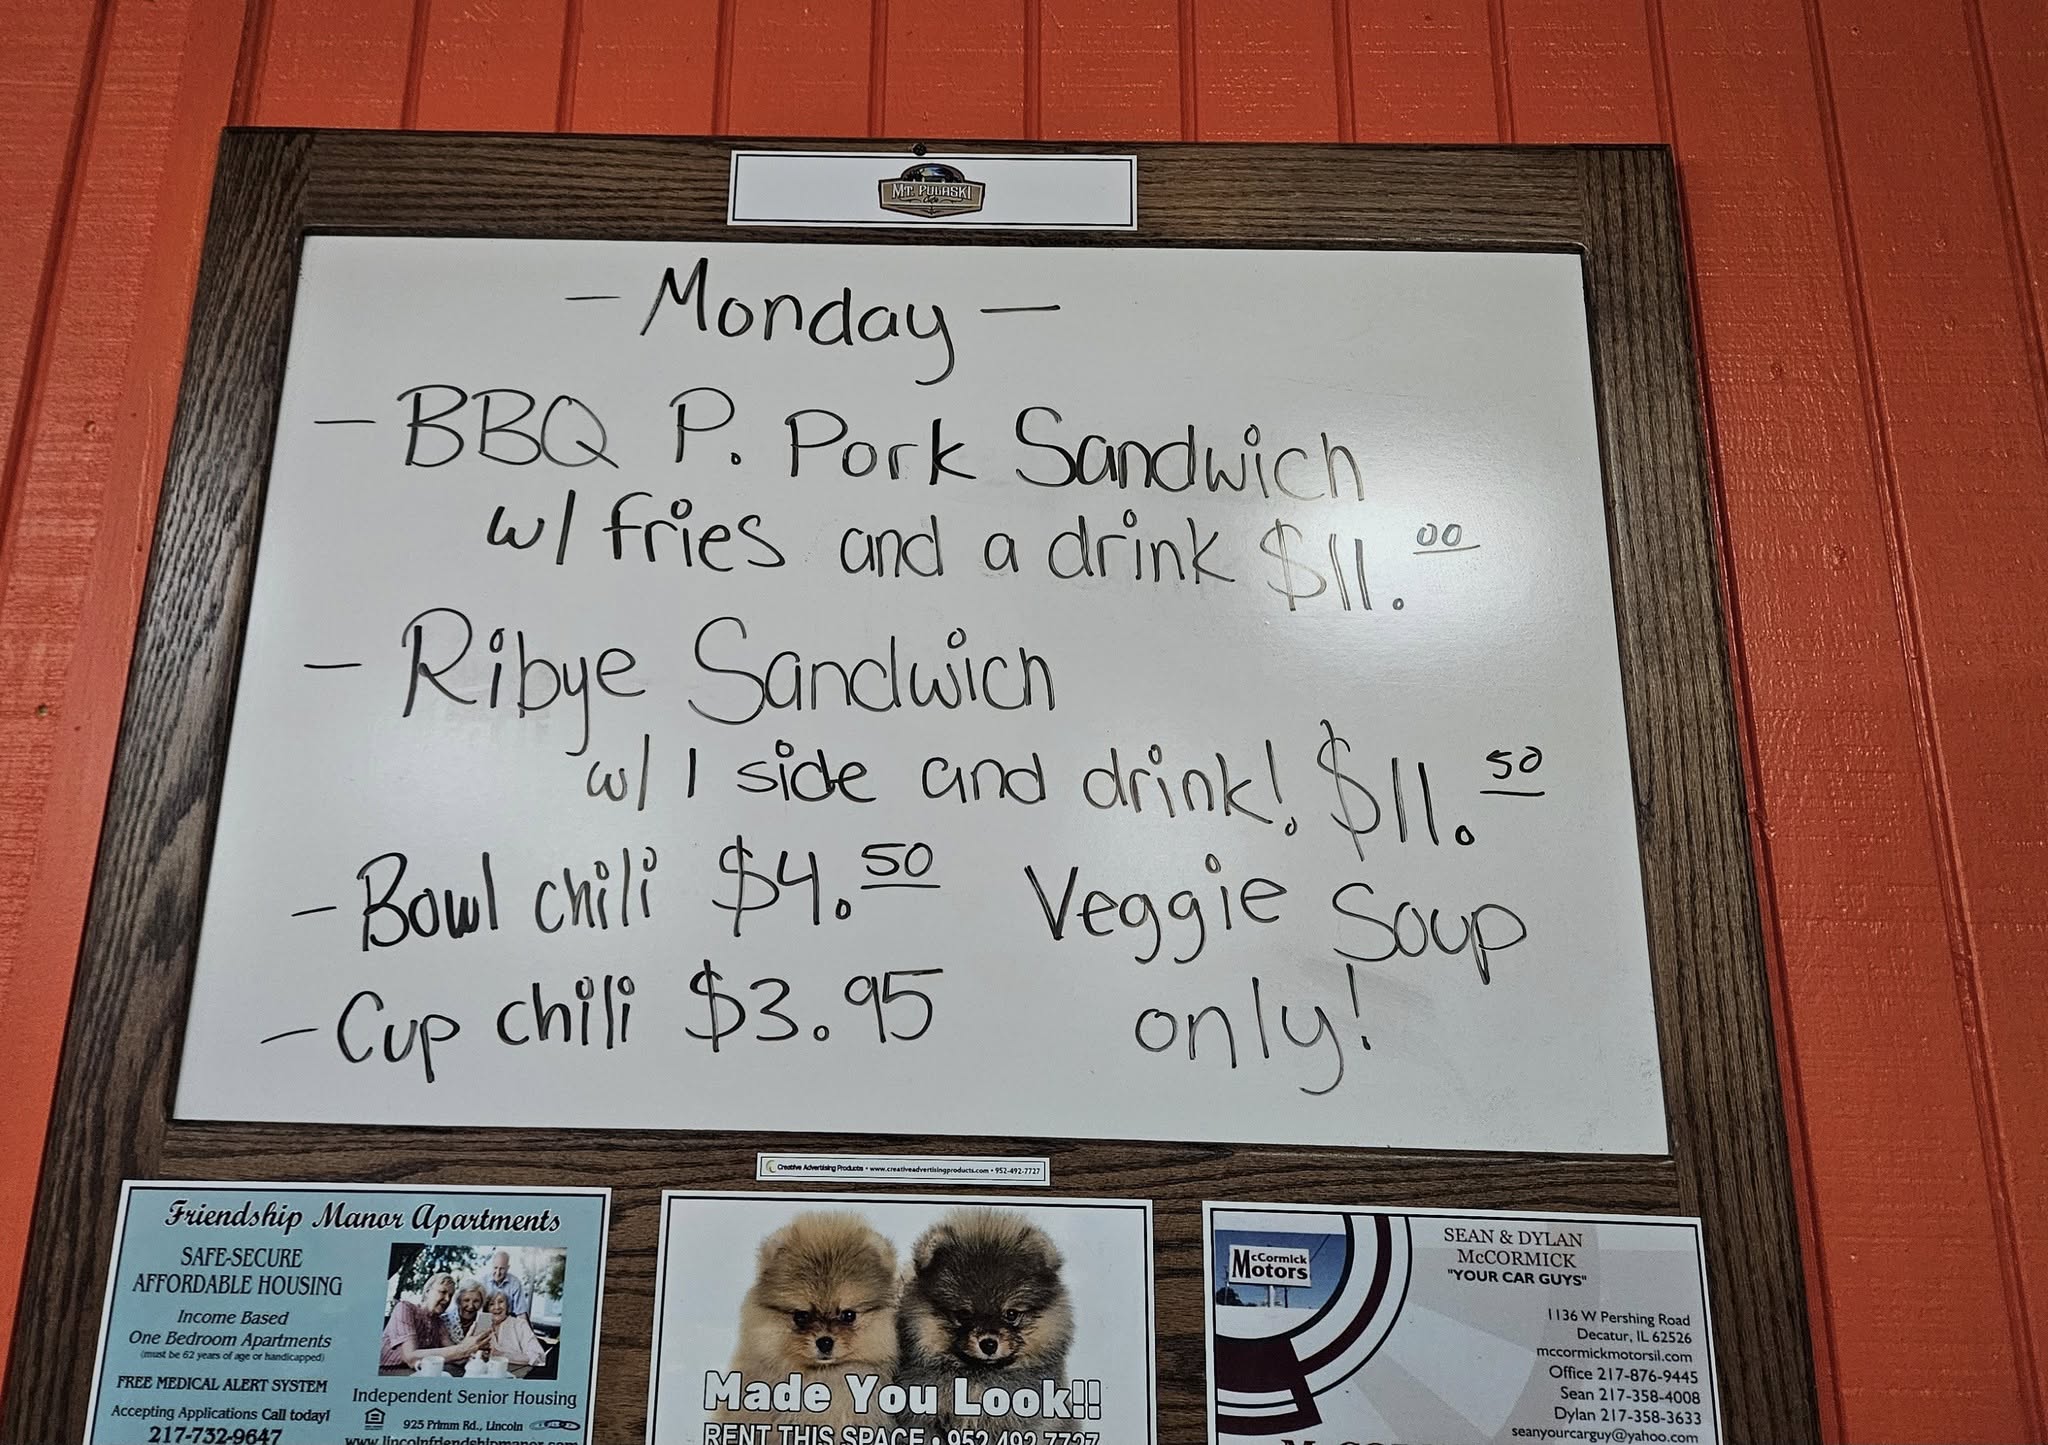 MT. PULASKI
Cafe
- Monday -
- BBQ P. Pork Sandwich
w/ fries and a drink $11.00
- Ribye Sandwich
w/ 1 side and drink! $11.50
- Bowl chili $4.50
- Cup chili $3.95
Veggie Soup
only!
Creative Advertising Products • www.creativeadvertisingproducts.com • 952-492-7727
Friendship Manor Apartments
SAFE-SECURE
AFFORDABLE HOUSING
Income Based
One Bedroom Apartments
(must be 62 years of age or handicapped)
FREE MEDICAL ALERT SYSTEM
Accepting Applications Call today!
217-732-9647
Independent Senior Housing
925 Primm Rd., Lincoln
www.lincolnfriendshipmanor.com
Made You Look!!
RENT THIS SPACE • 952.492.7727
McCormick
Motors
SEAN & DYLAN
McCORMICK
"YOUR CAR GUYS"
1136 W Pershing Road
Decatur, IL 62526
mccormickmotorsil.com
Office 217-876-9445
Sean 217-358-4008
Dylan 217-358-3633
seanyourcarguy@yahoo.com